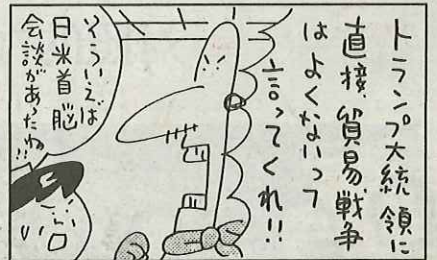 トランプ大統領に
直接貿易戦争
はよくないって
言ってくれ!!
そういえば
日米首脳
会談があったわね!!